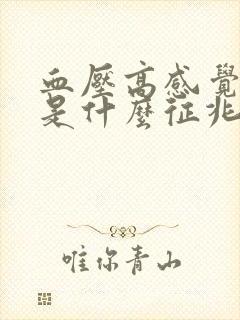 血壓高感覺
是什麼征兆
唯你青山